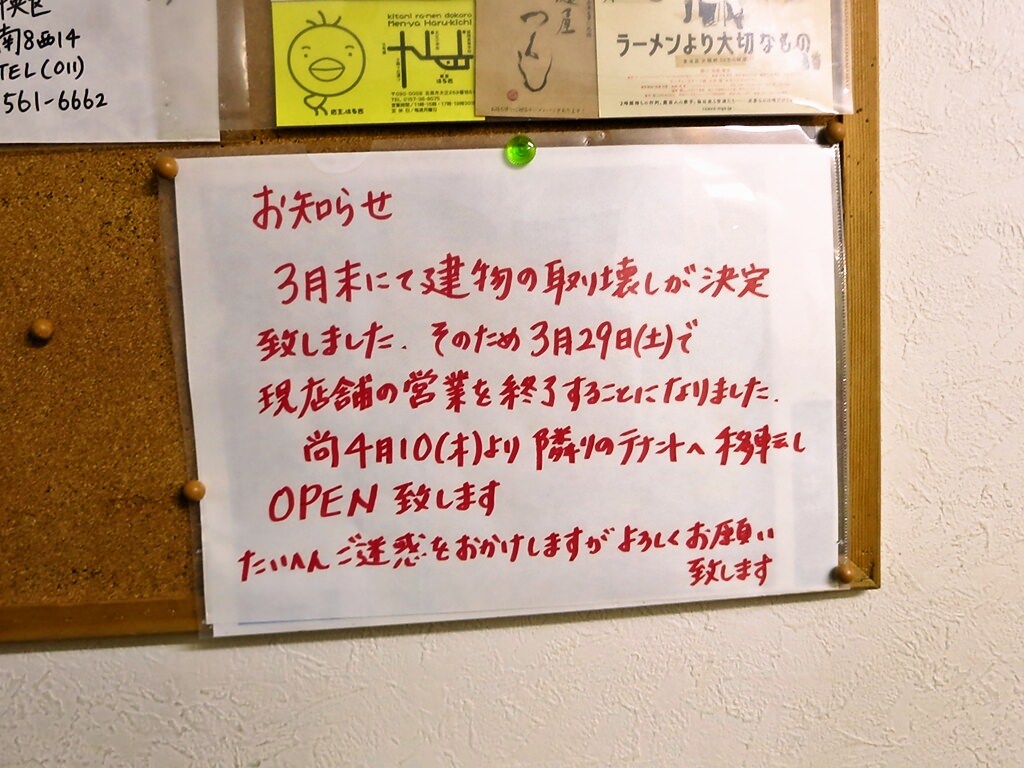 南8西14
TEL(011)
561-6662
kitami ra-men dokoro
Men-ya Haru-kichi
つくし
ラーメンより大切なもの
お知らせ
3月末にて建物の取り壊しが決定
致しました. そのため3月29日(土)で
現店舗の営業を終了することになりました.
尚4月10(木)より 隣りのテナントへ移転し
OPEN 致します
たいへんご迷惑をおかけしますがよろしくお願い
致します